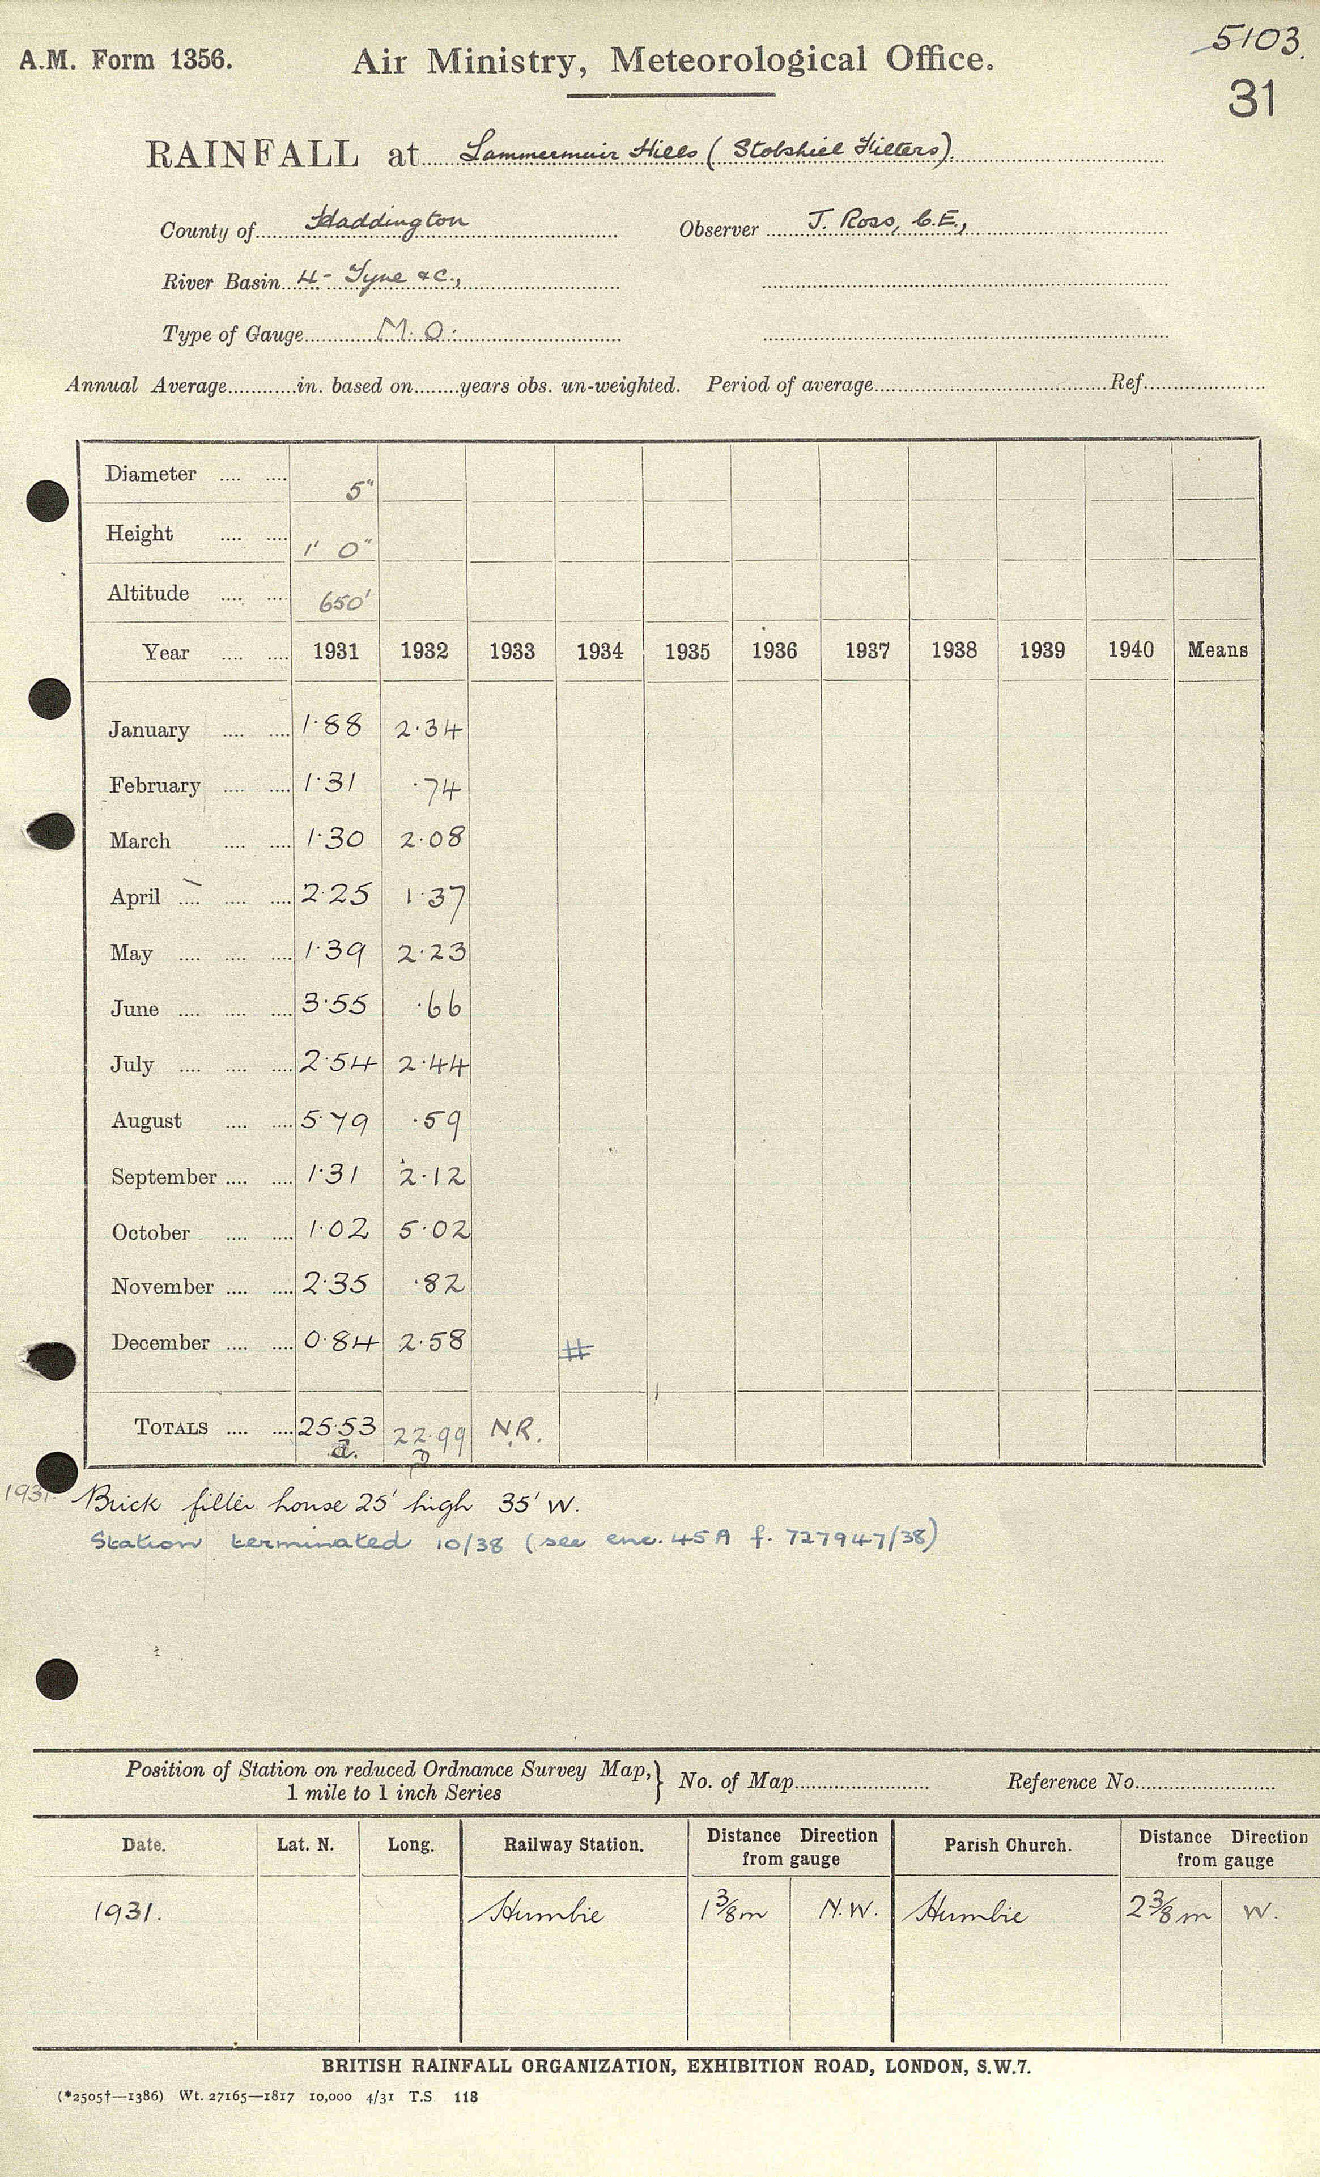 5103.
A.M. Form 1356. Air Ministry, Meteorological Office.
31
RAINFALL at Lammermuir Hills (Stobshiel Filters).
County of Haddington Observer J. Ross, C.E.,
River Basin 4- Tyne &c.,
Type of Gauge M.O.
Annual Average in. based on years obs. un-weighted. Period of average Ref.
Diameter 5"
Height 1' 0"
Altitude 650'
Year 1931 1932 1933 1934 1935 1936 1937 1938 1939 1940 Means
January 1.88 2.34
February 1.31 .74
March 1.30 2.08
April 2.25 1.37
May 1.39 2.23
June 3.55 .66
July 2.54 2.44
August 5.79 .59
September 1.31 2.12
October 1.02 5.02
November 2.35 .82
December 0.84 2.58 #
TOTALS 25.53 22.99 N.R.
a.
1931. Brick filter house 25' high 35' W.
Station terminated 10/38 (see enc. 45A f. 727947/38)
Position of Station on reduced Ordnance Survey Map, } No. of Map Reference No.
1 mile to 1 inch Series
Date. Lat. N. Long. Railway Station. Distance Direction from gauge Parish Church. Distance Direction from gauge
1931. Humbie 1 3/8 m N.W. Humbie 2 3/8 m W.
BRITISH RAINFALL ORGANIZATION, EXHIBITION ROAD, LONDON, S.W.7.
(*2505†—1386) Wt. 27165—1817 10,000 4/31 T.S. 118